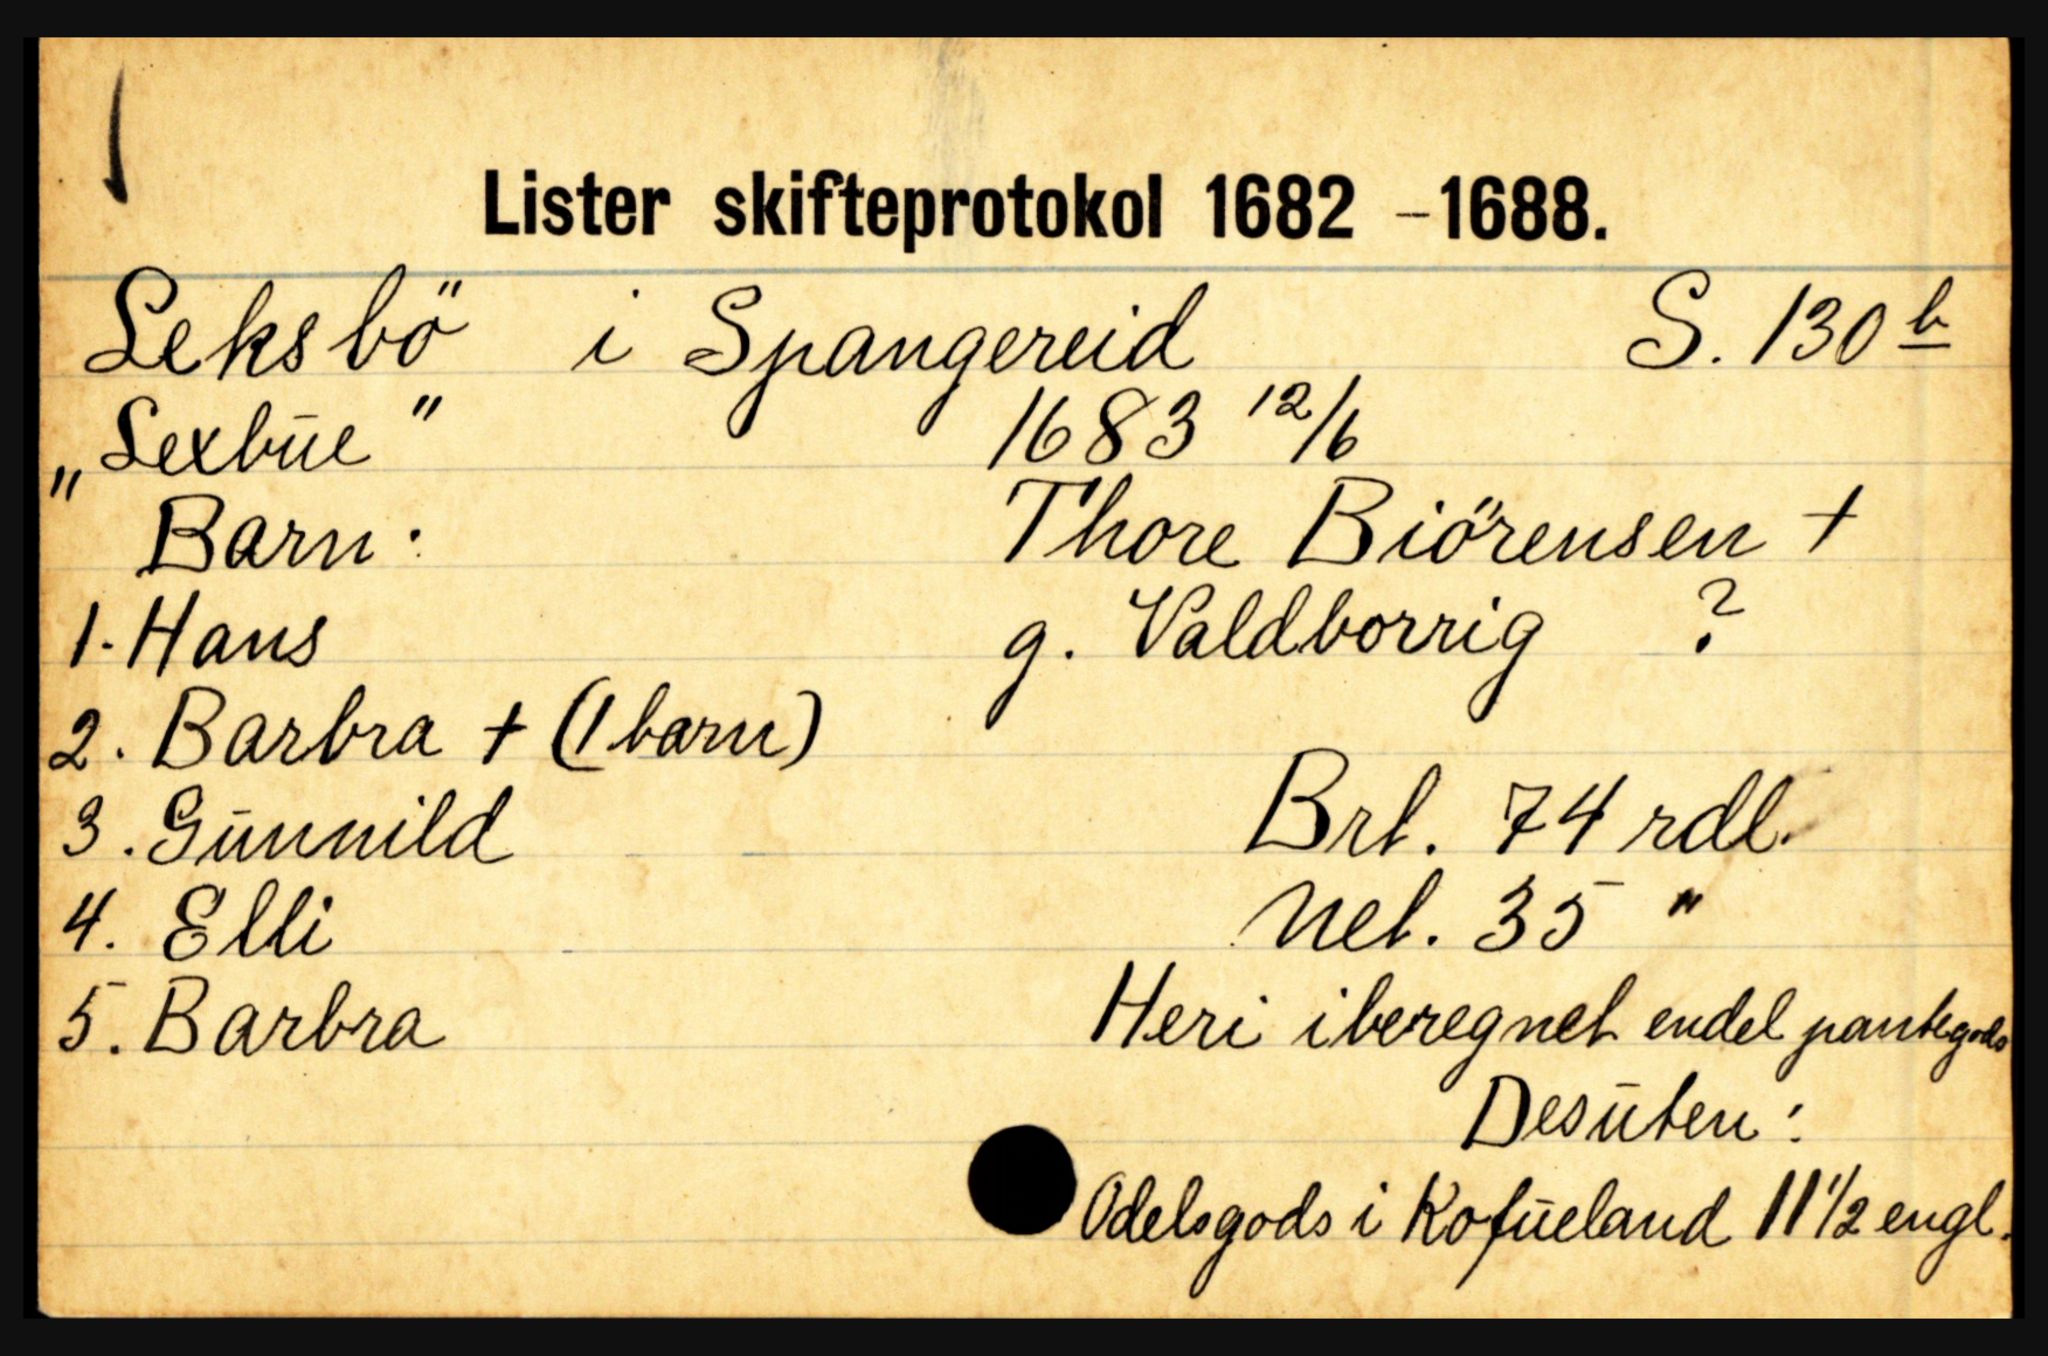 Lister skifteprotokol 1682 – 1688.
Leksbö i Spangereid S. 130 b
„Lexbūe" 1683 12/6
Barn: Thore Biörensen +
1. Hans g. Valdborrig ?
2. Barbra + (1 barn)
3. Gūnnild Brt. 74 rdl.
4. Elli Net. 35 "
5. Barbra Heri iberegnet endel pantegods
Desūten:
Odelsgods i Kofūeland 11 1/2 engl.